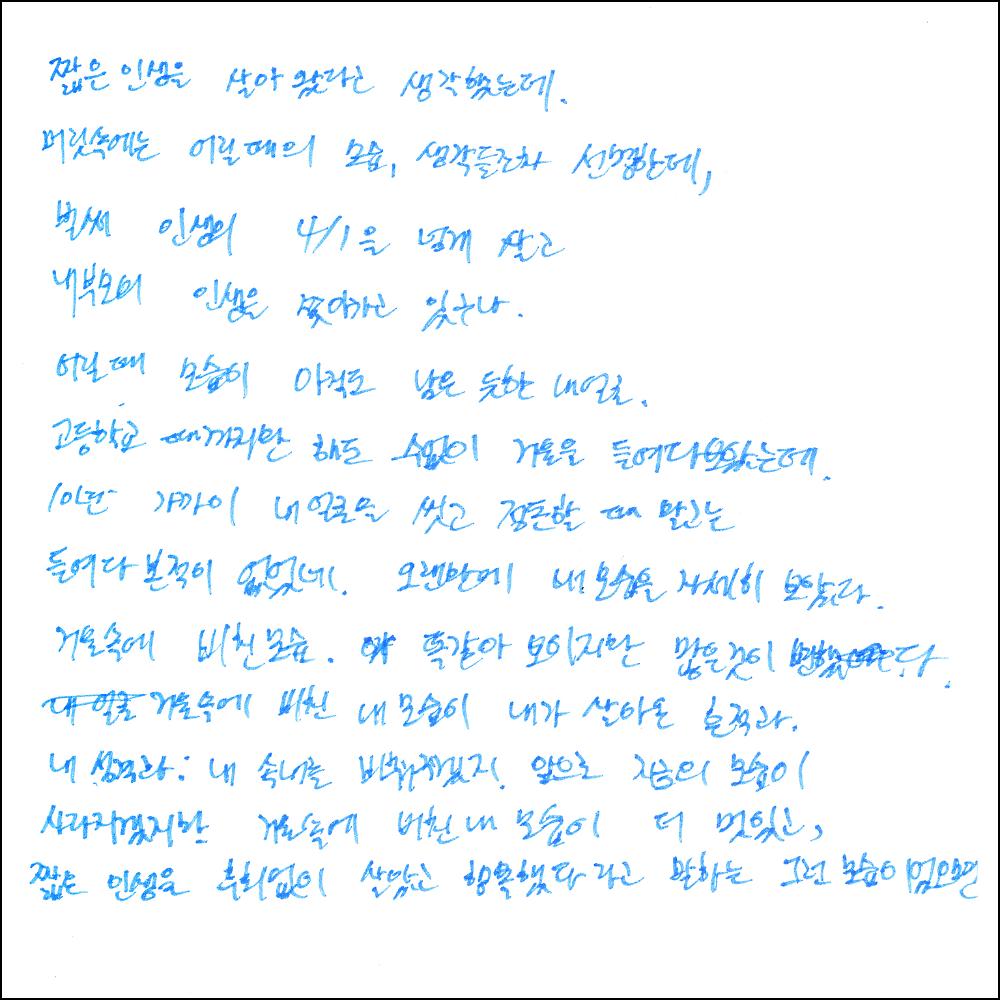 짧은 인생을 살아 왔다고 생각했는데.
머릿속에는 어릴때의 모습, 생각들조차 선명한데,
벌써 인생의 4/1을 넘게 살고
내부모의 인생을 쫓아가고 있구나.
어릴때 모습이 아직도 남은 듯한 내얼굴.
고등학교 때까지만 해도 수없이 거울을 들여다보았는데.
이리 가까이 내 얼굴을 씻고 정돈할 때 말고는
들여다 본적이 없었네. 오랜만에 내모습을 자세히 보았다.
거울속에 비친모습. 똑같아 보이지만 많은것이 변했다.
거울속에 비친 내 모습이 내가 살아온 흔적과.
내 생각과: 내 속내를 비춰주겠지. 앞으로 지금의 모습이
사라지겠지만 거울속에 비친 내 모습이 더 멋있고,
짧은 인생을 후회없이 살았고 행복했다 라고 말하는 그런 모습이었으면